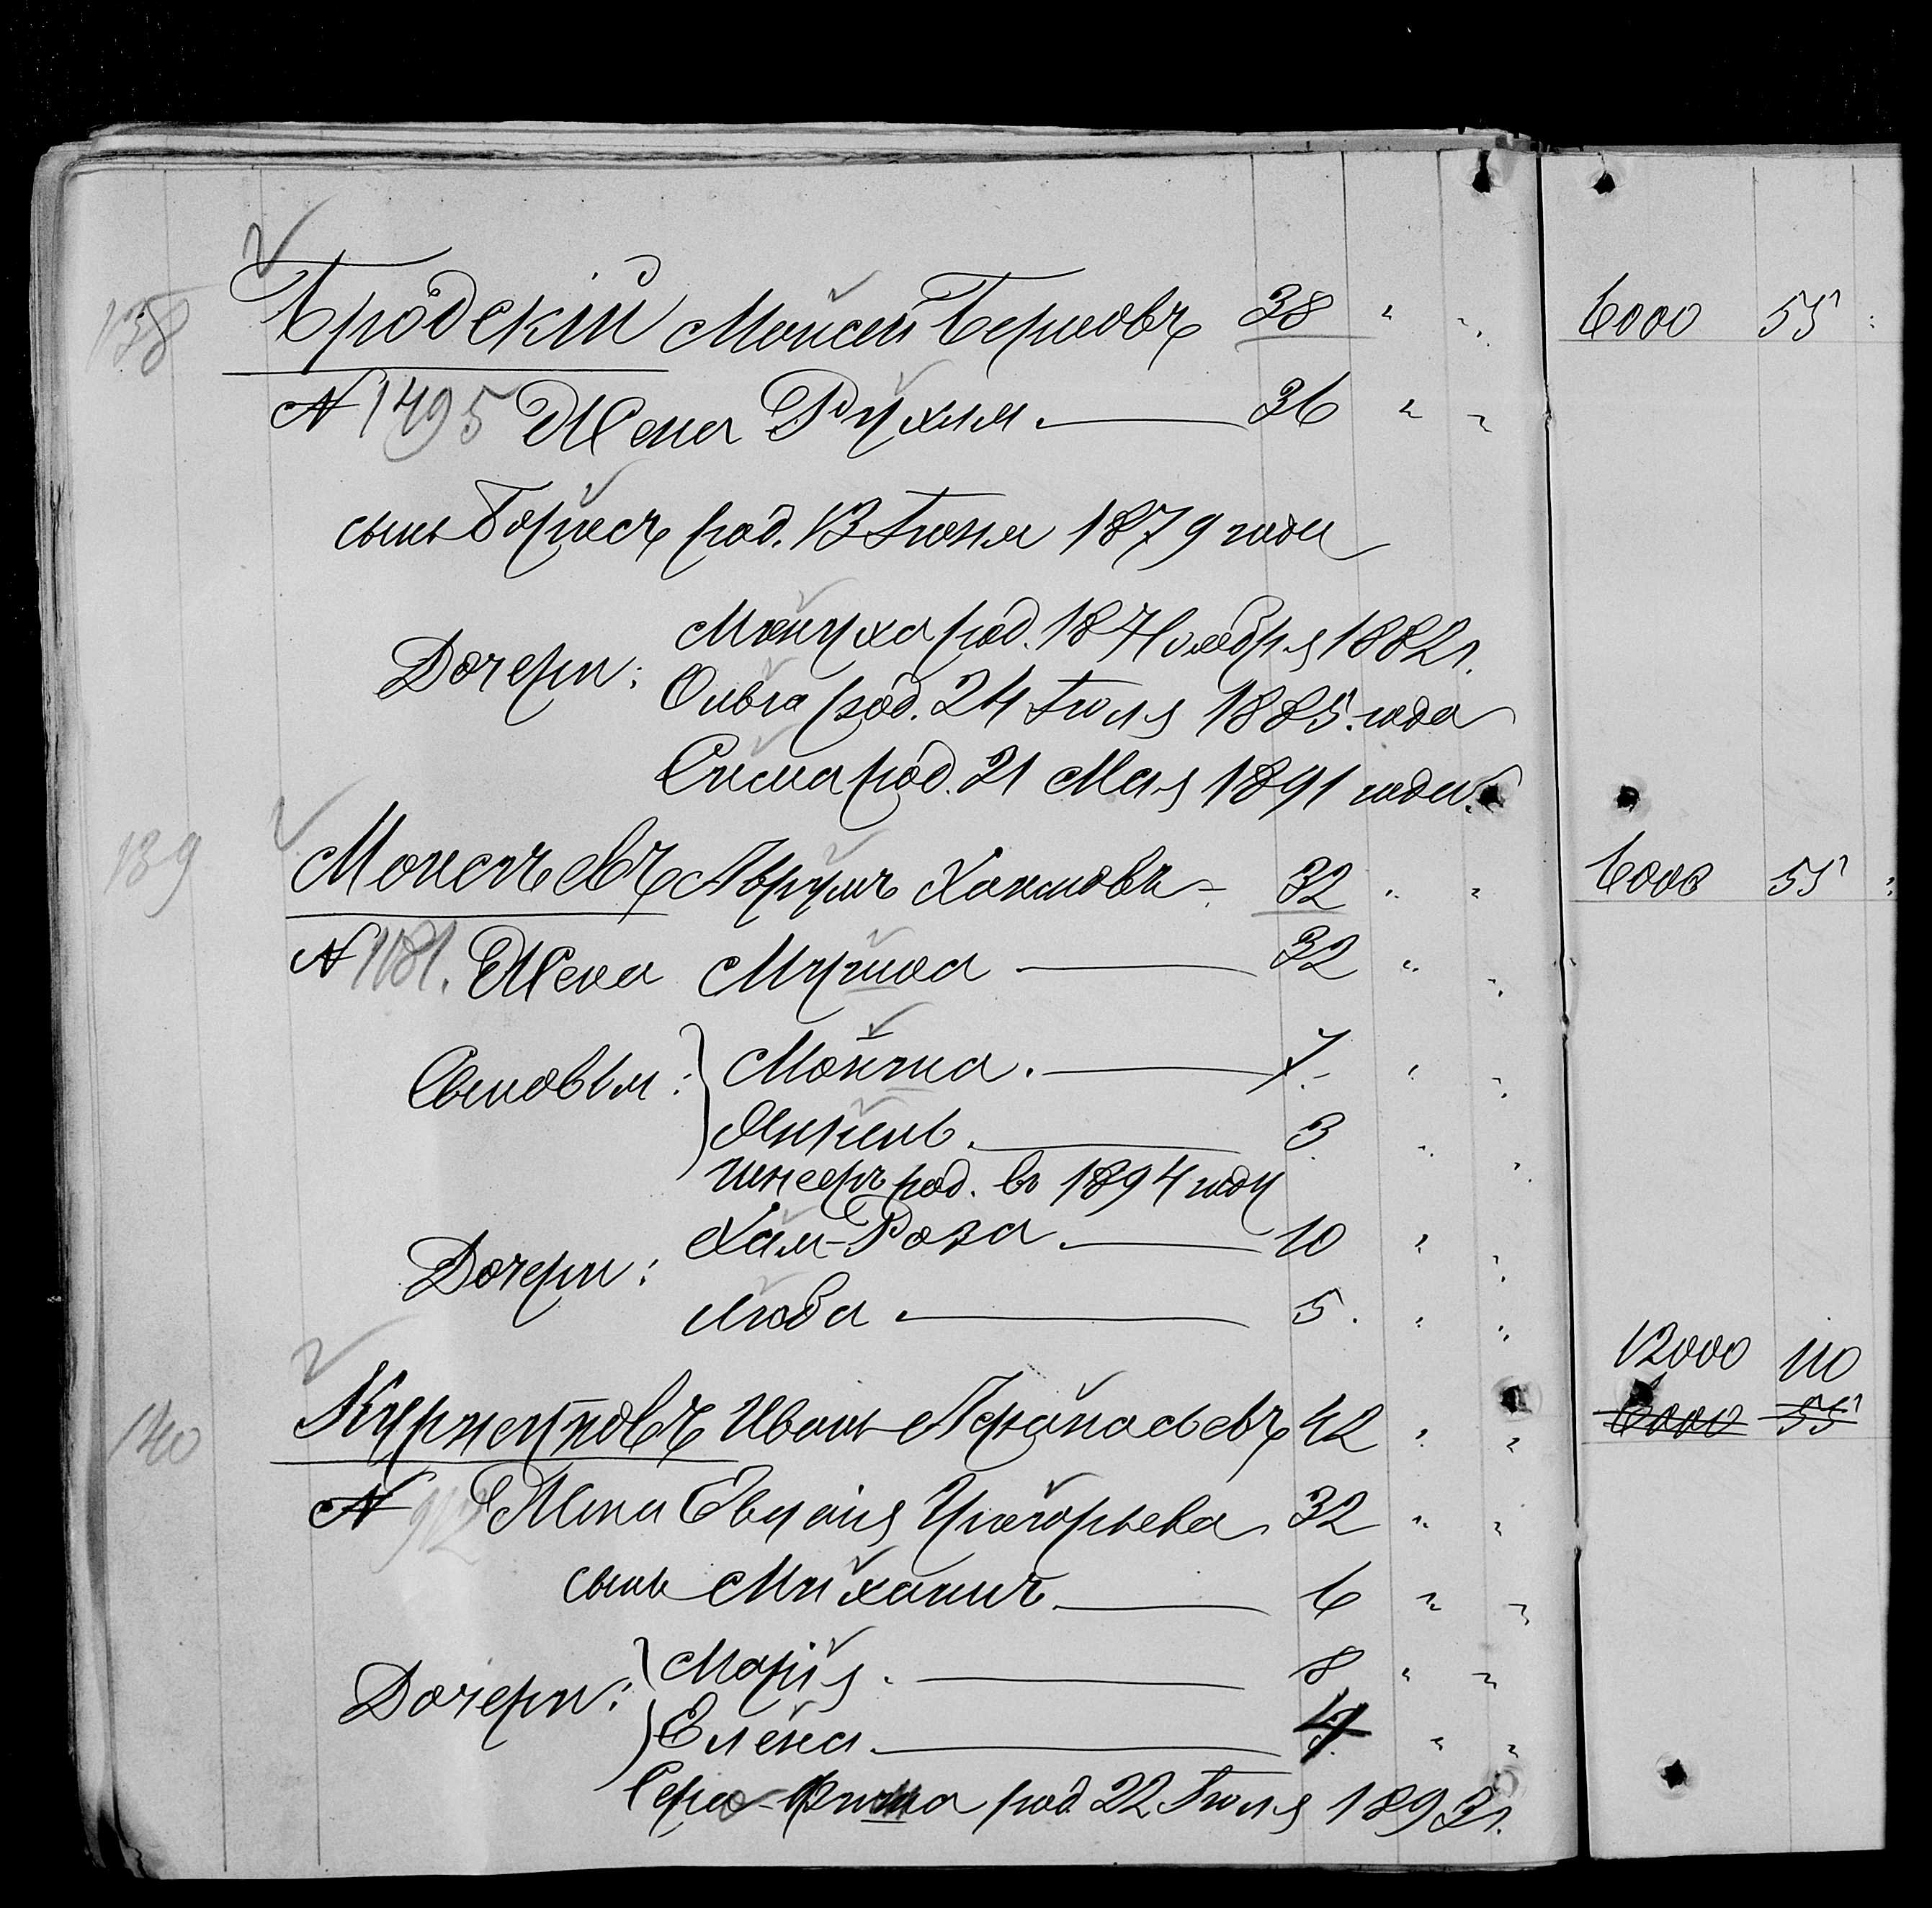 138 Бродскій Мойсей Берковъ 38 " " 6000 55
№ 1495 Жена Рухля. — 36 " "
сынъ Борисъ род. 13 Іюня 1879 года
Дочери: Менуха род. 18 Ноября 1882 г.
Ольга род. 24 Іюля 1885 года
Сима род. 21 Мая 1891 года.
139 Аврумъ Хаимовъ - 32 " " 6000 55
№ 1181. Жена — 32 " "
Сыновья: — 7 " "
Янкель. — 3 " "
род. въ 1894 году
Дочери: Хая-Роза. — 10 " "
Люба — 5. " "
12000 110
140 Иванъ Афанасьевъ 42 " " 6000 55
№ 912 Жена Григорьева 32 " "
сынъ Михаилъ — 6 " "
Дочери: Марія. — 8 " "
Елена — " "
Сера-фима род. 22 Іюля 1893 г.